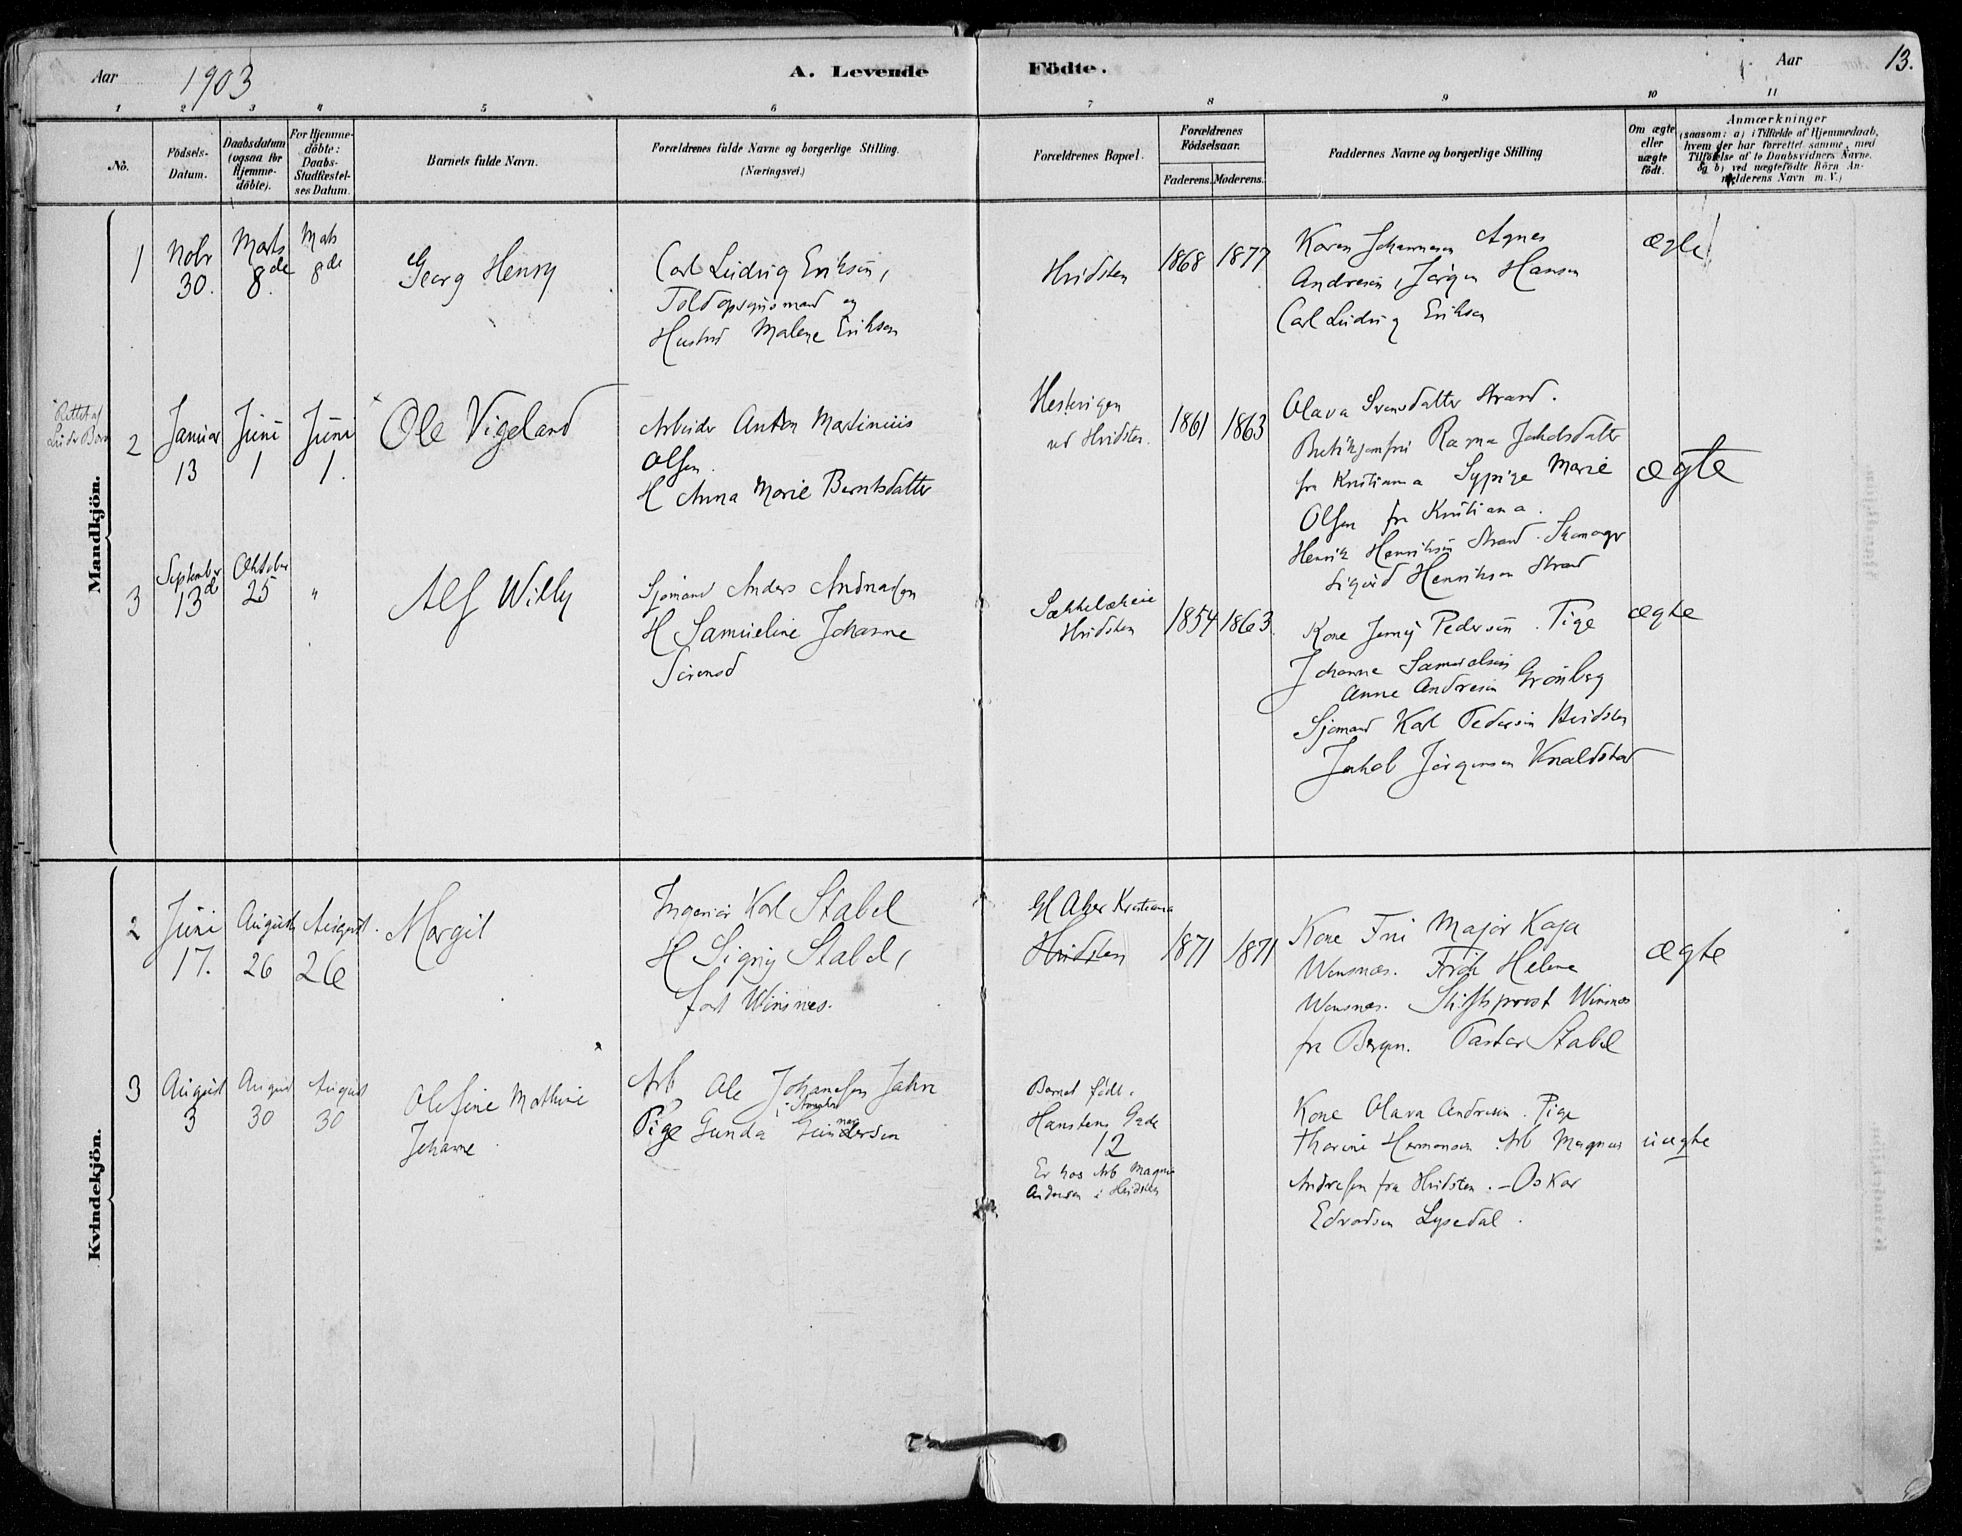 Aar 1903 A. Levende Födte. Aar 13.
1 2 3 4 5 6 7 8 9 10 11
No.
Födsels-Datum.
Daabsdatum (ogsaa for Hjemme-döbte).
For Hjemme-döbte: Daabs-Stadfæstel-ses Datum.
Barnets fulde Navn.
Forældrenes fulde Navne og borgerlige Stilling.
(Næringsvei.)
Forældrenes Bopæl.
Forældrenes Födselsaar.
Faderens. Moderens.
Faddernes Navne og borgerlige Stilling
Om ægte eller uægte födt.
Anmærkninger
(saasom: a) i Tilfælde af Hjemmedaab, hvem der har forrettet samme, med Tilföielse af to Daabsvidners Navne, og b) ved uægtefödte Börn An-melderens Navn m. V.)
Mandkjön.
1 Nobr 30. Marts 8de Mats 8de
Georg Henry
Carl Ludvig Eriksen,
Toldopsynsmand og
Hustru Malene Eriksen
Hvidsten 1868 1877
Karen Johannesen Agnes
Andresen, Jörgen Hansen
Carl Ludvig Eriksen
ægte
Rettet af
2 Januar 13 Juni 1 Juni 1.
Ole Vigeland
Arbeider Anton Martinius
Olsen
H Anna Marie Berntsdatter
ved Hvidsten. 1861 1863
Olava Svensdatter Strand.
Ragna Jakobsdatter
fra Kristiania Sypige Marie
Olsen fra Kristiania.
Henrik Henriksen Strand. Skomager
Sigurd Henriksen Strand
ægte
3 September 13de Oktober 25 "
Alf Willy
Sjömand Anders Andreasen
H Samueline Johanne
Hvidsten 1854 1863.
Kone Jenny Pedersen. Pige
Johanne Samuelsen
Anne Andresen Grönberg
Sjömand Karl Pedersen Hvidsten
Jakob Jörgensen Knaldstad
ægte
Kvindekjön.
2 Juni 17. August 26 August 26
Margit
Ingeniör Karl Stabel
H Signy Stabel,
födt Winsnes.
Gl Aker Kristiania
Hvidsten 1871 1871
Kone Fru Major Kaja
Winsnæs. Frök Helene
Winsnæs. Stiftsprovst Winsnæs
fra Bergen. Pastor Stabel
ægte
3 August 3 August 30 August 30
Olefine Mathine
Johanne
Arb Ole Johansen Jahn
Pige Gunda Gundersen
Barnet födt.
Hanstens Gade
12
Er hos Arb Magnus
Andresen i Hvidsten
Kone Olava Andresen. Pige
Thorine Hermansen. Arb Magnus
Andresen fra Hvidsten. - Oskar
Edvardsen Lysedal.
uægte